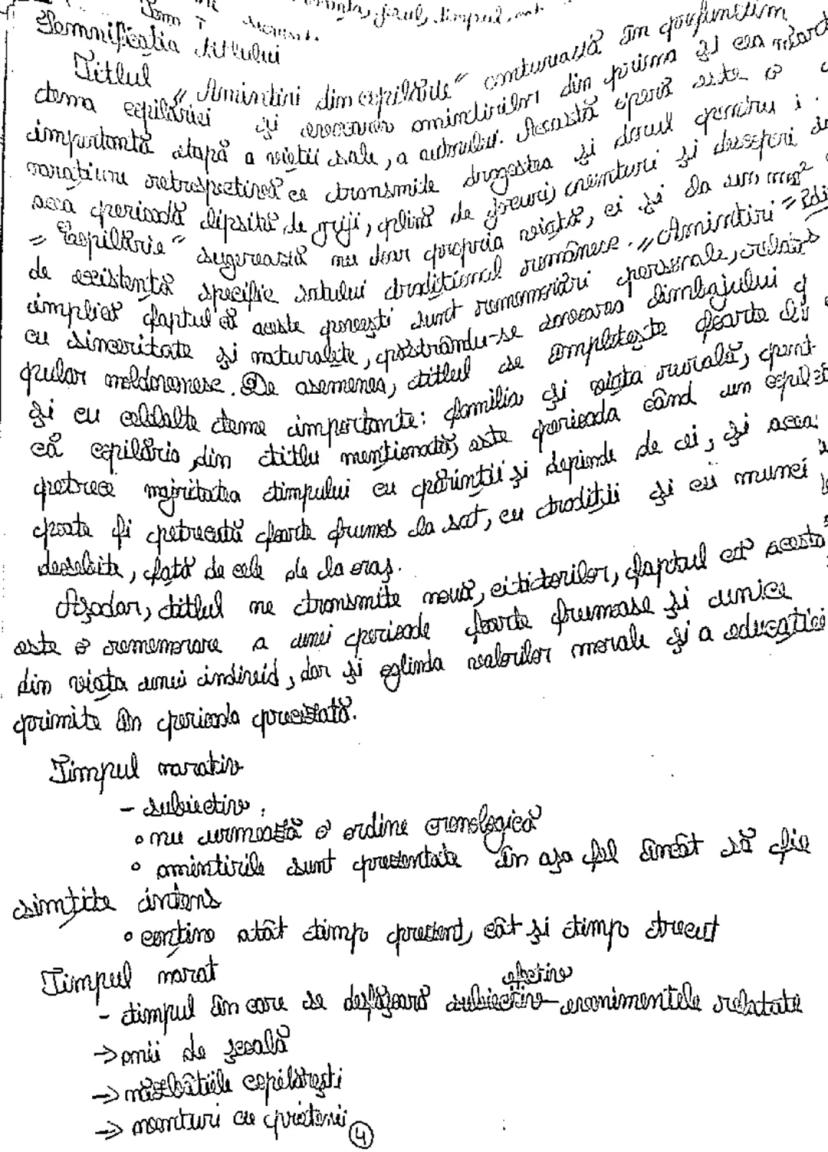 jocul, timpul
Semnificația titlului
Titlul „Amintiri din copilărie” conturează în profunzim
tema copilăriei și evocarea amintirilor din prima și cea mai
importantă etapă a vieții sale, a autorului. Această operă este o
narațiune retrospectivă ce transmite dragostea și dorul pentru
acea perioadă lipsită de griji, plină de jocuri, aventuri și descoperi
„Copilărie” sugerează nu doar propria viață, ci și la un mod
de existență specific satului tradițional românesc. „Amintiri”
implică faptul că aceste povești sunt rememorări personale, relat
cu sinceritate și naturalețe, păstrându-se savoarea limbajului p
pular moldovenesc. De asemenea, titlul se împletește foarte
și cu celelalte teme importante: familia și viața rurală, pent
că copilăria, din titlu menționată, este perioada când un copil
petrece majoritatea timpului cu părinții și depinde de ei, și acea
poate fi petrecută foarte frumos la sat, cu tradiții și cu munci
deosebite, față de cele de la oraș.
Așadar, titlul ne transmite nouă, cititorilor, faptul că aceasta
este o rememorare a unei perioade foarte frumoase și unice
din viața unui individ, dar și oglinda valorilor morale și a educației
primite în perioada precizată.
Timpul narativ
- subiectiv:
◦ nu urmează o ordine cronologică
◦ amintirile sunt prezentate în așa fel încât să fie
simțite intens
◦ conține atât timp prezent, cât și timp trecut
Timpul narat
efectiv
- timpul în care se desfășoară subiectiv evenimentele relatate
→ anii de școală
→ năzbâtiile copilărești
→ aventuri cu prietenii
4